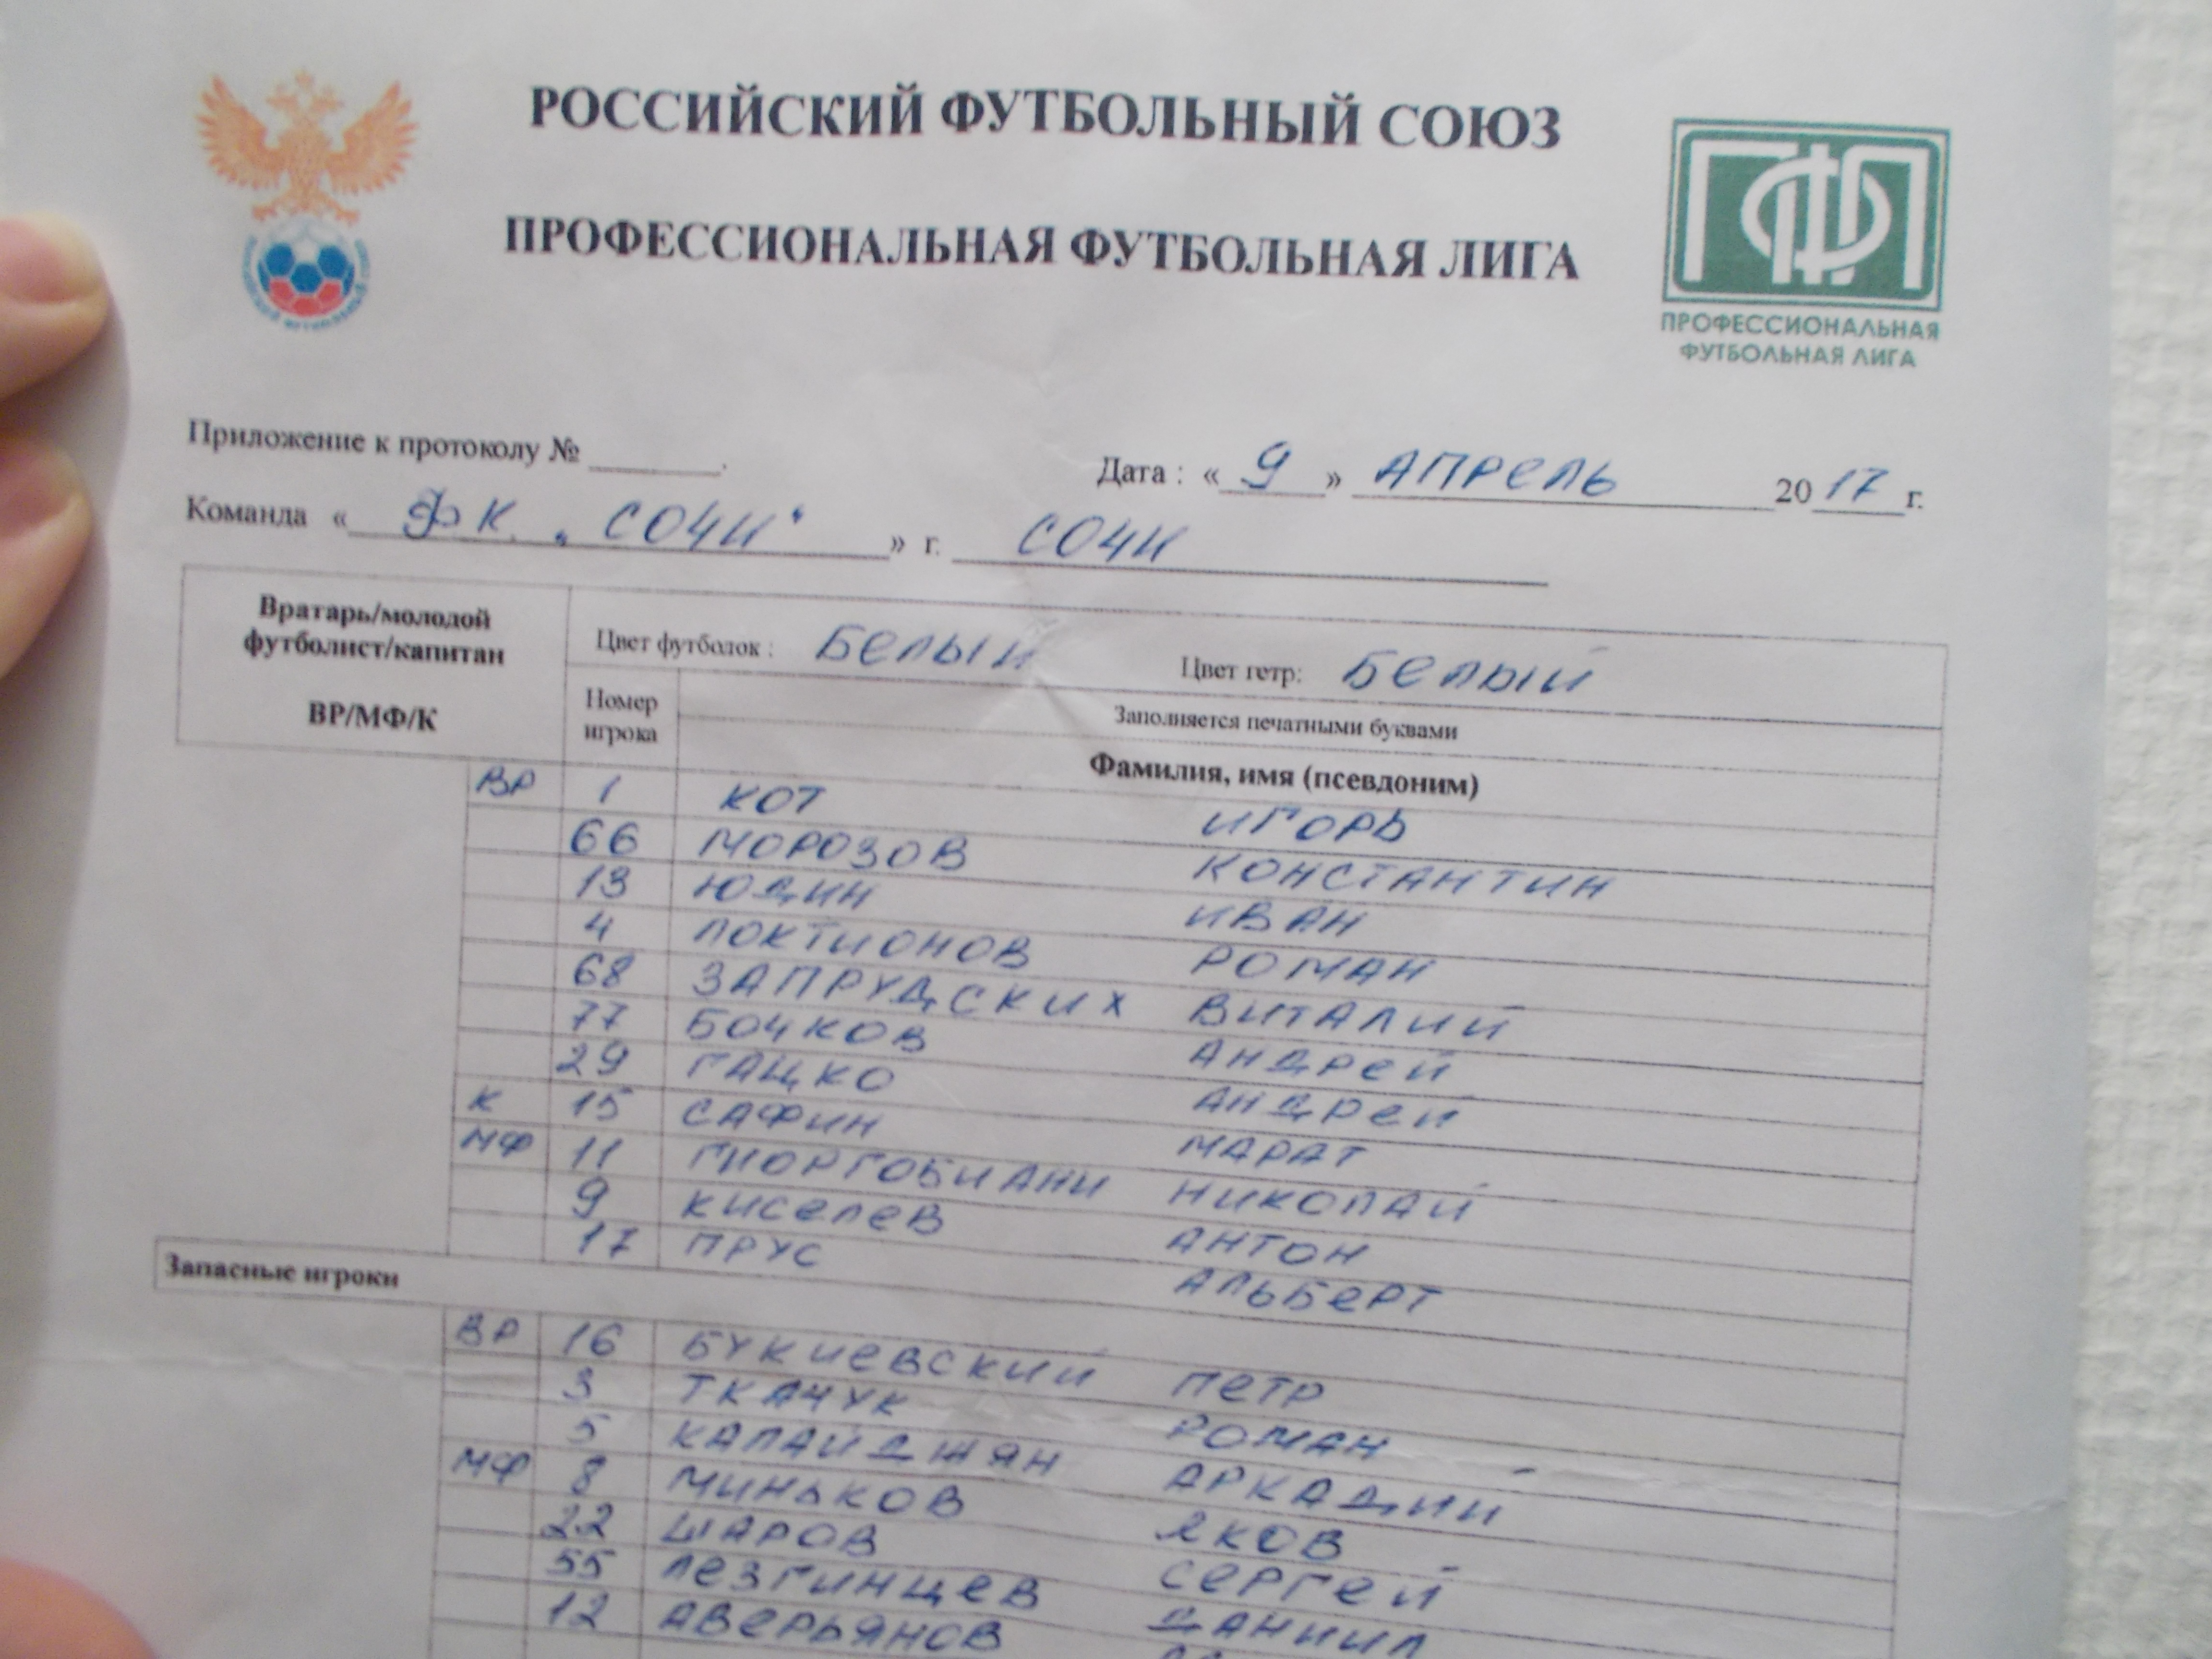 РОССИЙСКИЙ ФУТБОЛЬНЫЙ СОЮЗ
ПРОФЕССИОНАЛЬНАЯ ФУТБОЛЬНАЯ ЛИГА
ПФЛ
ПРОФЕССИОНАЛЬНАЯ
ФУТБОЛЬНАЯ ЛИГА
Приложение к протоколу № ________.
Дата : « 9 » АПРЕЛЬ 2017 г.
Команда « ФК. „СОЧИ“ » г. СОЧИ
Вратарь/молодой
футболист/капитан
ВР/МФ/К
Цвет футболок : БЕЛЫЙ Цвет гетр: БЕЛЫЙ
Номер
игрока
Заполняется печатными буквами
Фамилия, имя (псевдоним)
ВР 1 КОТ ИГОРЬ
66 МОРОЗОВ КОНСТАНТИН
13 ЮДИН ИВАН
4 ЛОКТИОНОВ РОМАН
68 ЗАПРУДСКИХ ВИТАЛИЙ
77 БОЧКОВ АНДРЕЙ
29 ГАЦКО АНДРЕЙ
К 15 САФИН МАРАТ
МФ 11 ГИОРГОБИАНИ НИКОЛАЙ
9 КИСЕЛЕВ АНТОН
17 ПРУС АЛЬБЕРТ
Запасные игроки
ВР 16 БУКИЕВСКИЙ ПЕТР
3 ТКАЧУК РОМАН
5 КАЛАЙДЖЯН АРКАДИЙ
МФ 8 МИНЬКОВ ЯКОВ
22 ШАРОВ СЕРГЕЙ
55 ЛЕЗГИНЦЕВ ДАНИИЛ
12 АВЕРЬЯНОВ